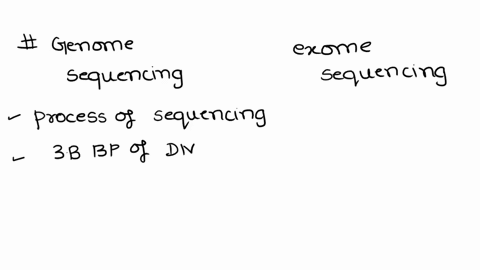 # Genome
sequencing
exome
sequencing
process of sequencing
3B BP of DN